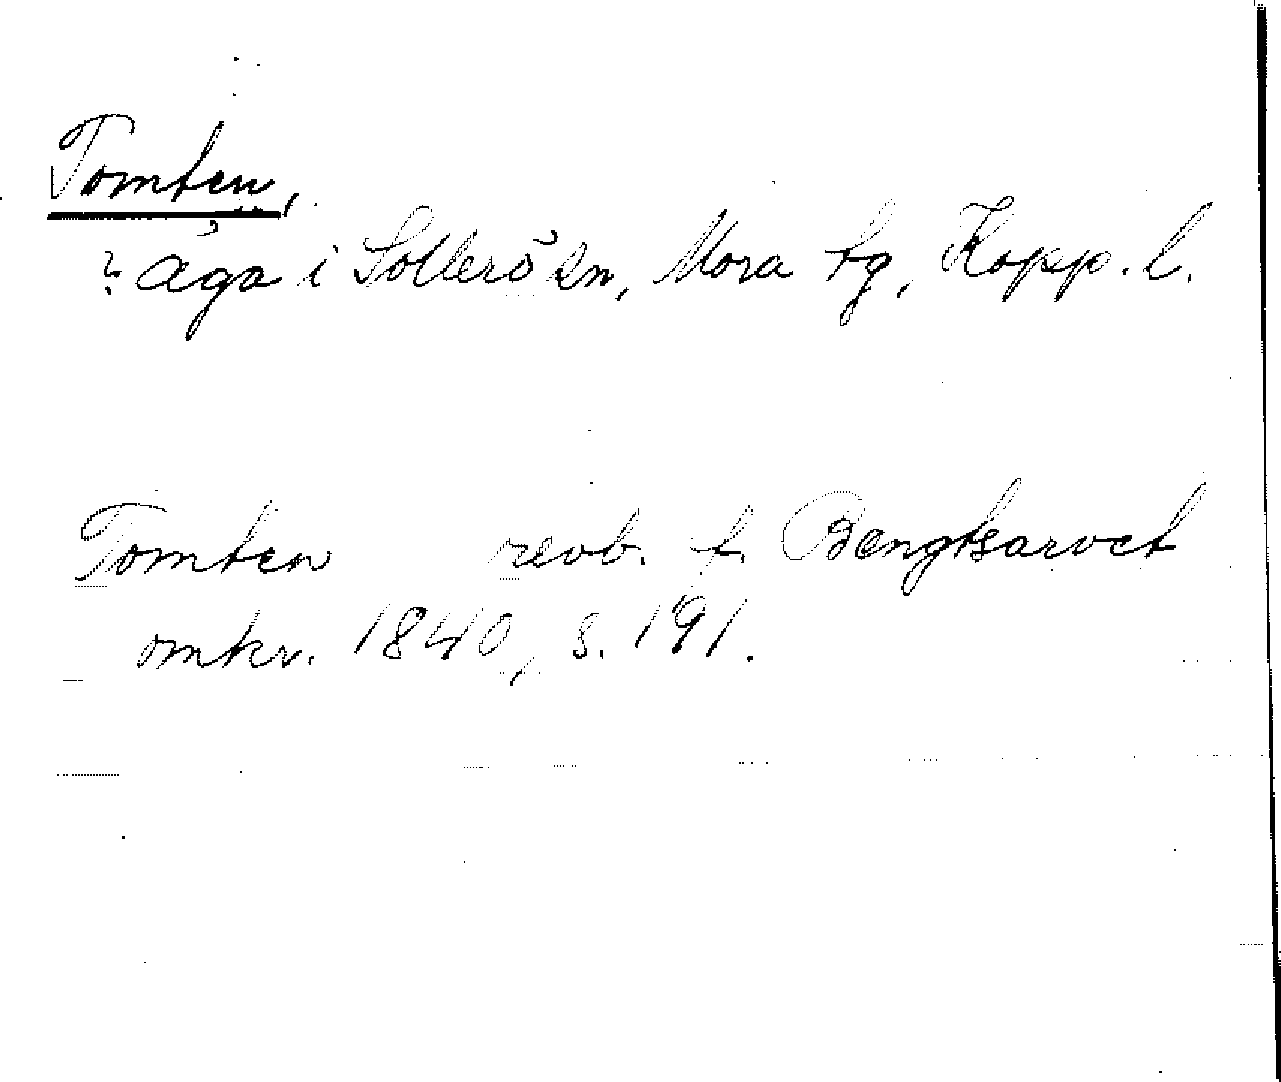 Tomten,
? äga i Sollerö sn, Mora tg, Kopp. l.
Tomten revb. t. Bengtsarvet
omkr. 1840, s. 191.